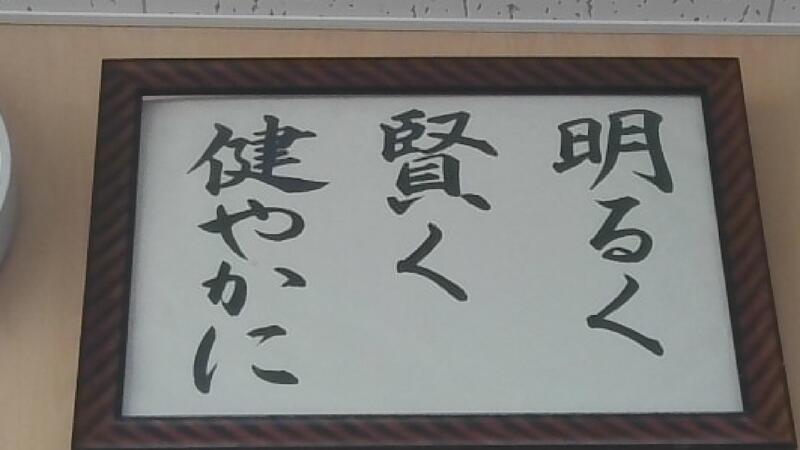 明るく
賢く
健やかに